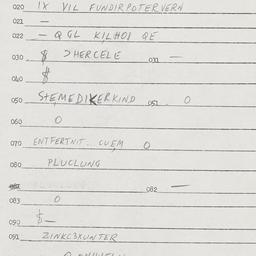 020 IX VIL FUNDIRPOTERVERN
021 —
022 — QGL KILHOI QE
030 $ >HERCELE 031 —
040 $
050 STEMEDIKERKIND 051 . O
060 O
070 ENTFERTNIT.. CUEM O
080 PLUCLUNG
082 —
083 O
090 $—
091 ZINKC3KUNTER